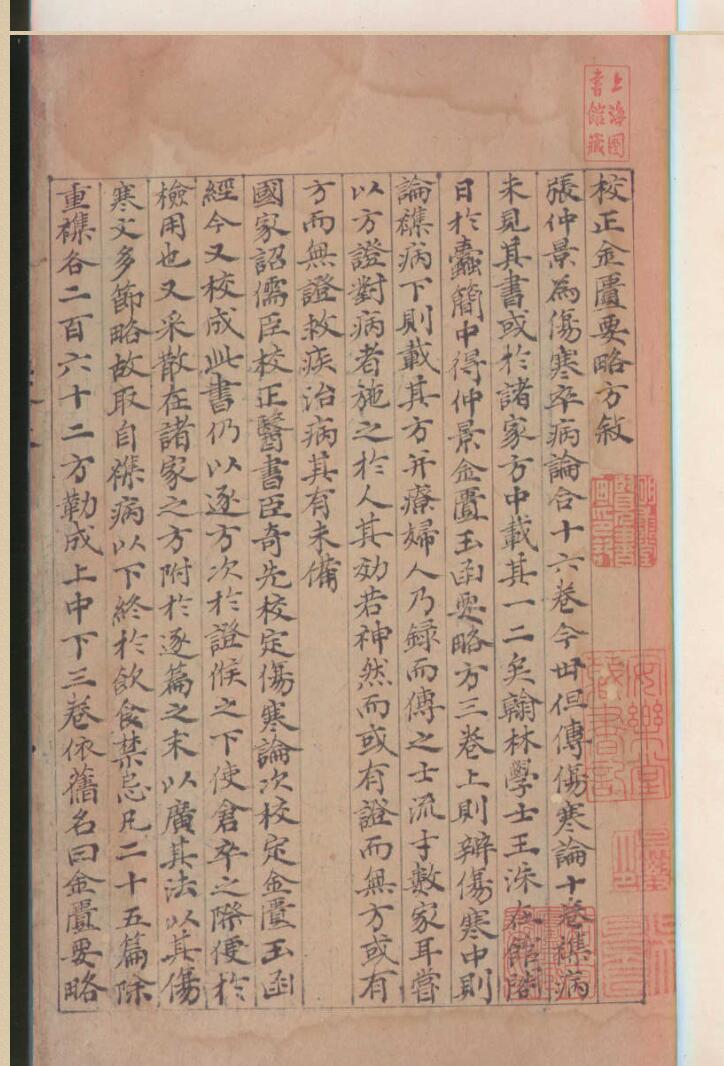 上海圖
書館藏
校正金匱要略方敘
張仲景為傷寒卒病論合十六卷今世但傳傷寒論十卷襍病
未見其書或於諸家方中載其一二矣翰林學士王洙在館閣
日於蠹簡中得仲景金匱玉函要略方三卷上則辨傷寒中則
論襍病下則載其方并療婦人乃録而傳之士流才數家耳嘗
以方證對病者施之於人其効若神然而或有證而無方或有
方而無證救疾治病其有未備
國家詔儒臣校正醫書臣奇先校定傷寒論次校定金匱玉函
經今又校成此書仍以逐方次於證候之下使倉卒之際便於
檢用也又采散在諸家之方附於逐篇之末以廣其法以其傷
寒文多節略故取自襍病以下終於飲食禁忌凡二十五篇除
重襍合二百六十二方勒成上中下三卷依舊名曰金匱要略